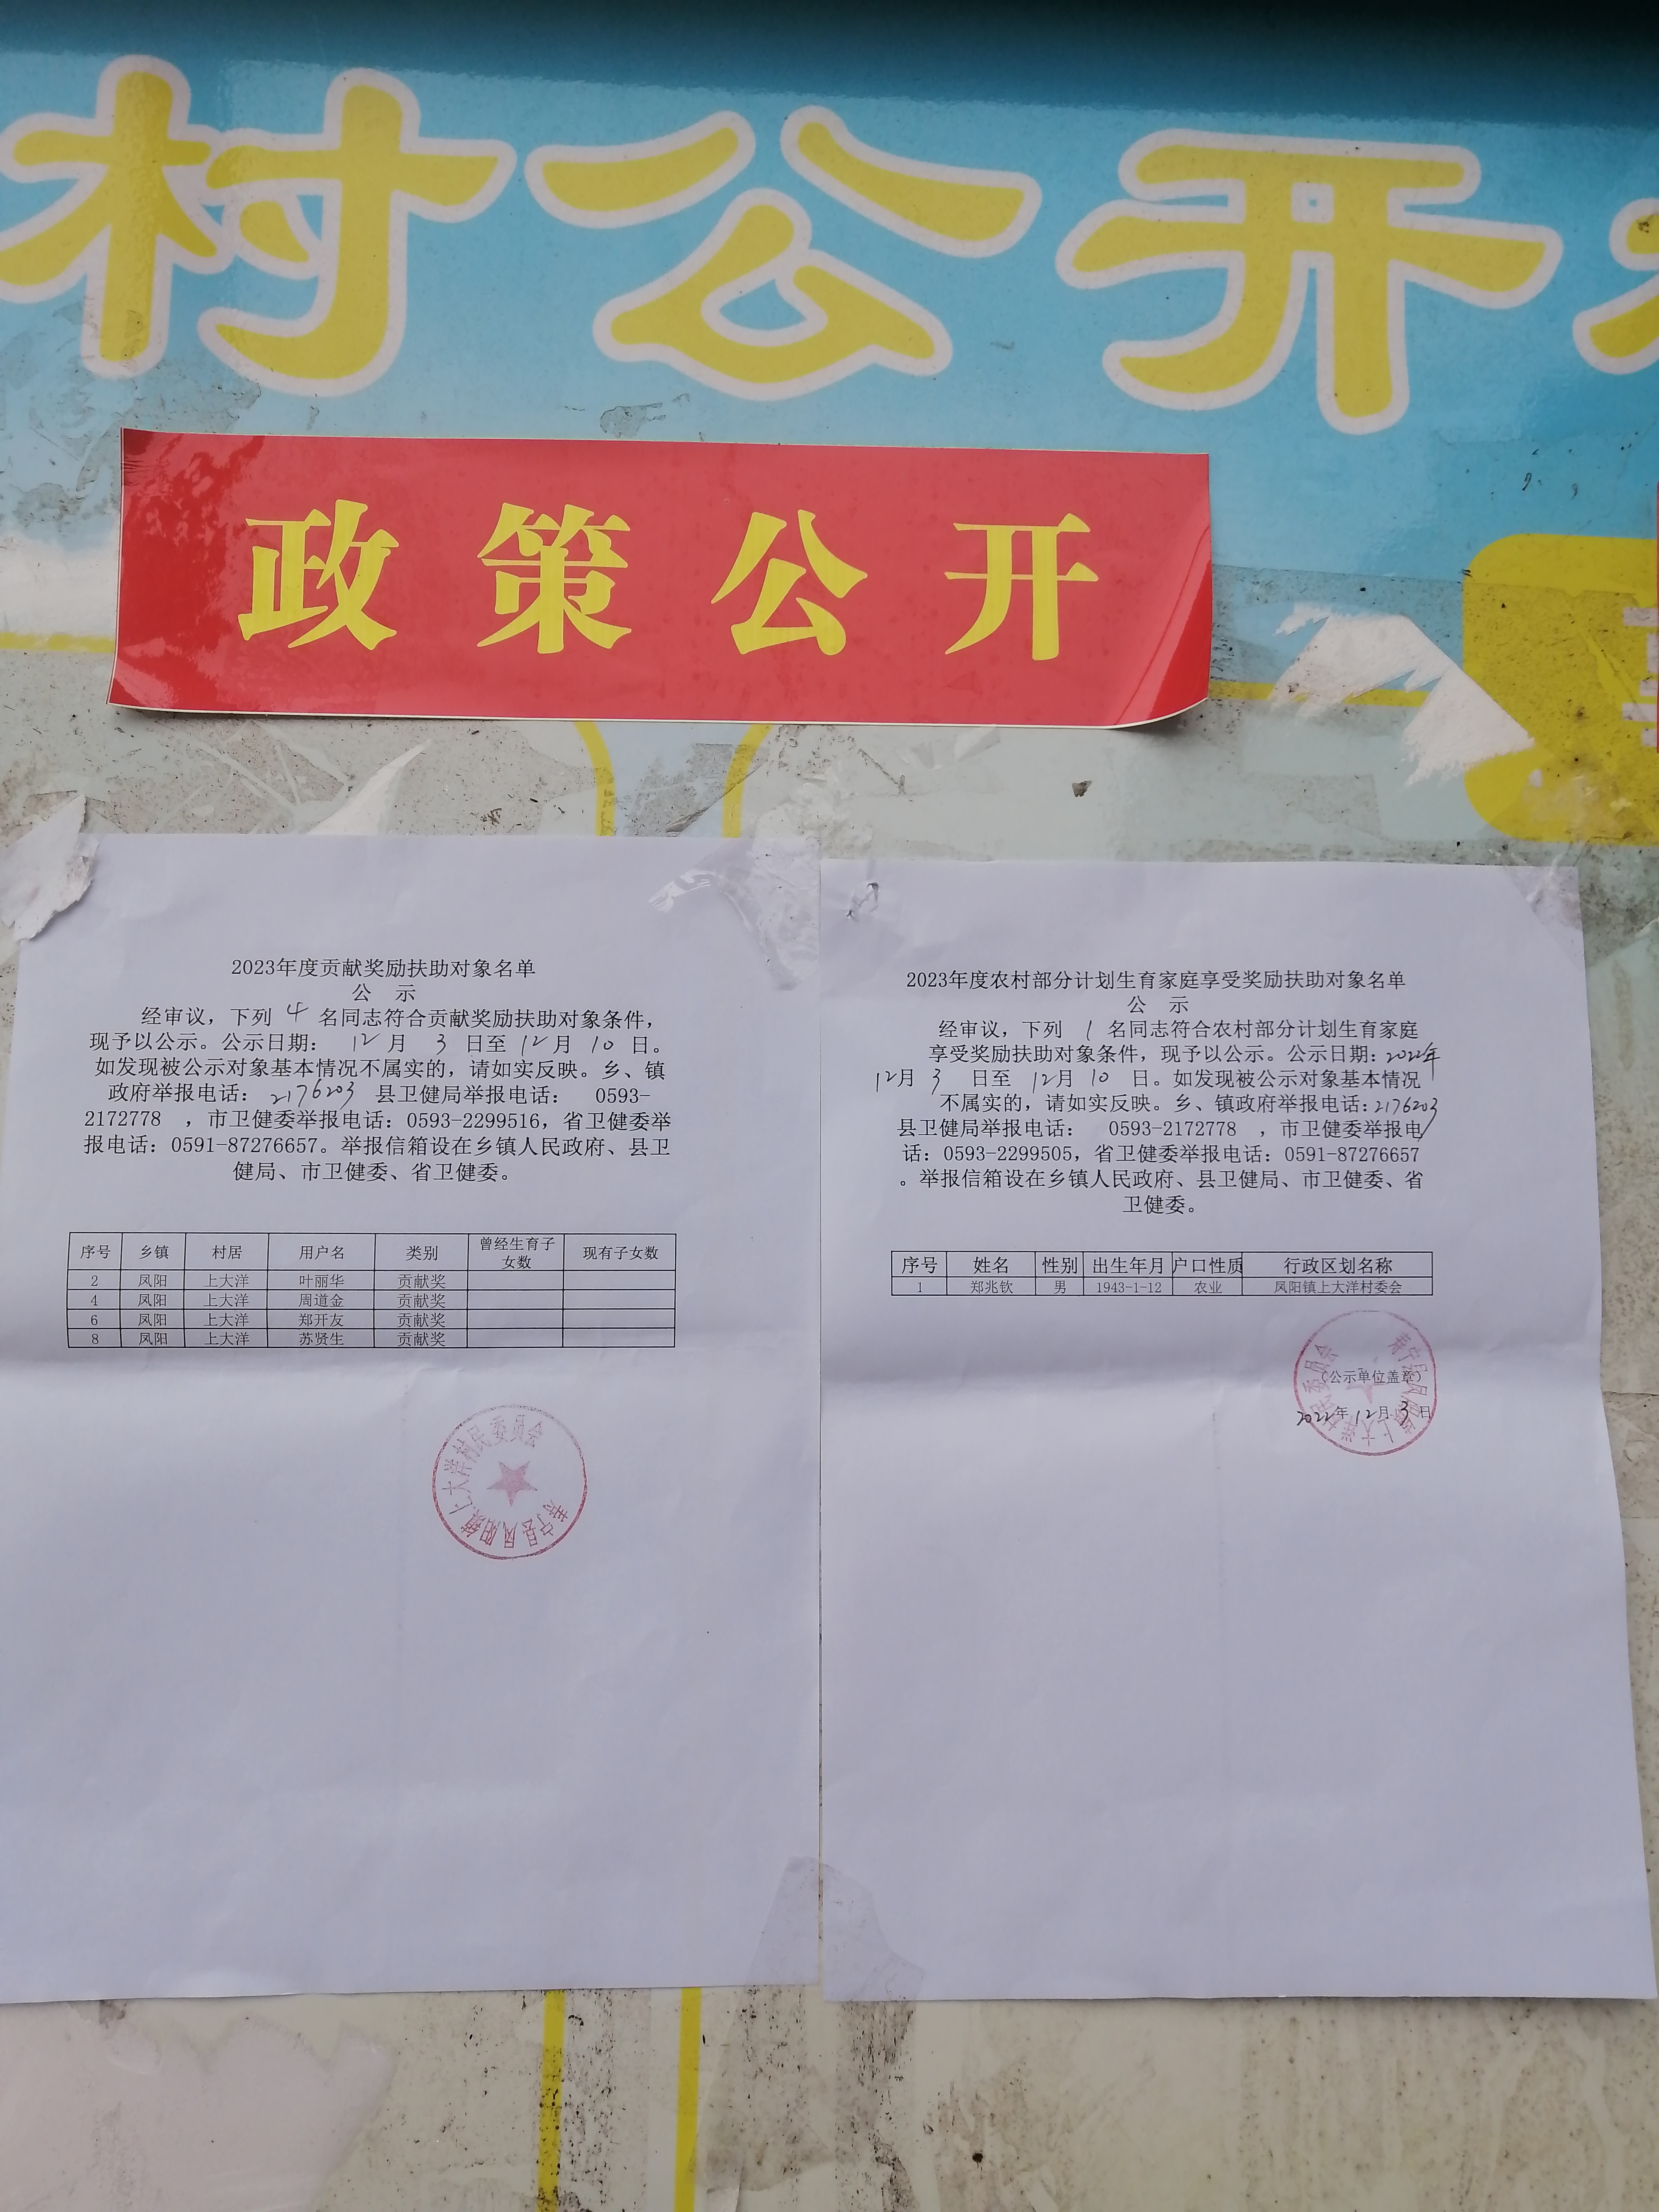 村公开
政策公开
2023年度贡献奖励扶助对象名单
公 示
经审议，下列 4 名同志符合贡献奖励扶助对象条件，
现予以公示。公示日期： 12 月 3 日至 12 月 10 日。
如发现被公示对象基本情况不属实的，请如实反映。乡、镇
政府举报电话： 2176203 县卫健局举报电话： 0593-
2172778 ，市卫健委举报电话：0593-2299516，省卫健委举
报电话：0591-87276657。举报信箱设在乡镇人民政府、县卫
健局、市卫健委、省卫健委。
序号 乡镇 村居 用户名 类别 曾经生育子女数 现有子女数
2 凤阳 上大洋 叶丽华 贡献奖
4 凤阳 上大洋 周道金 贡献奖
6 凤阳 上大洋 郑开友 贡献奖
8 凤阳 上大洋 苏贤生 贡献奖
寿宁县凤阳镇上大洋村民委员会
2023年度农村部分计划生育家庭享受奖励扶助对象名单
公 示
经审议，下列 1 名同志符合农村部分计划生育家庭
享受奖励扶助对象条件，现予以公示。公示日期：2022年
12月 3 日至 12月 10 日。如发现被公示对象基本情况
不属实的，请如实反映。乡、镇政府举报电话：2176203
县卫健局举报电话： 0593-2172778 ，市卫健委举报电
话：0593-2299505，省卫健委举报电话：0591-87276657
。举报信箱设在乡镇人民政府、县卫健局、市卫健委、省
卫健委。
序号 姓名 性别 出生年月 户口性质 行政区划名称
1 郑兆钦 男 1943-1-12 农业 凤阳镇上大洋村委会
寿宁县凤阳镇上大洋村民委员会
（公示单位盖章）
2022年 12月 3 日